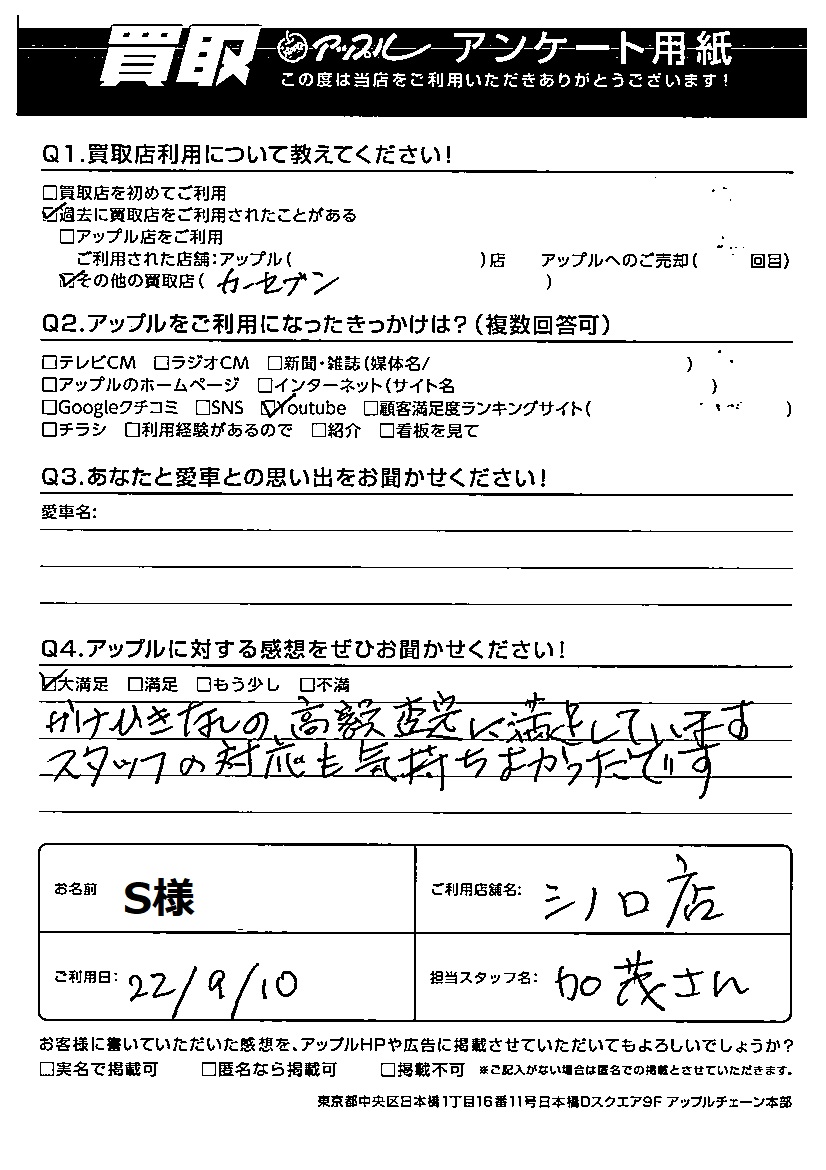 買取 アップル アンケート用紙
この度は当店をご利用いただきありがとうございます！
Q1.買取店利用について教えてください！
□買取店を初めてご利用
☑過去に買取店をご利用されたことがある
□アップル店をご利用
ご利用された店舗：アップル（ ）店 アップルへのご売却（ 回目）
☑その他の買取店（ カーセブン ）
Q2.アップルをご利用になったきっかけは？（複数回答可）
□テレビCM □ラジオCM □新聞・雑誌（媒体名/ ）
□アップルのホームページ □インターネット（サイト名 ）
□Googleクチコミ □SNS ☑Youtube □顧客満足度ランキングサイト（ ）
□チラシ □利用経験があるので □紹介 □看板を見て
Q3.あなたと愛車との思い出をお聞かせください！
愛車名：
Q4.アップルに対する感想をぜひお聞かせください！
☑大満足 □満足 □もう少し □不満
かけひきなしの高額査定に満足しています
スタッフの対応も気持ちよかったです
お名前 S様 ご利用店舗名： シノロ店
ご利用日： 22/9/10 担当スタッフ名： 加茂さん
お客様に書いていただいた感想を、アップルHPや広告に掲載させていただいてもよろしいでしょうか？
□実名で掲載可 □匿名なら掲載可 □掲載不可 ※ご記入がない場合は匿名での掲載とさせていただきます。
東京都中央区日本橋1丁目16番11号日本橋Dスクエア9F アップルチェーン本部